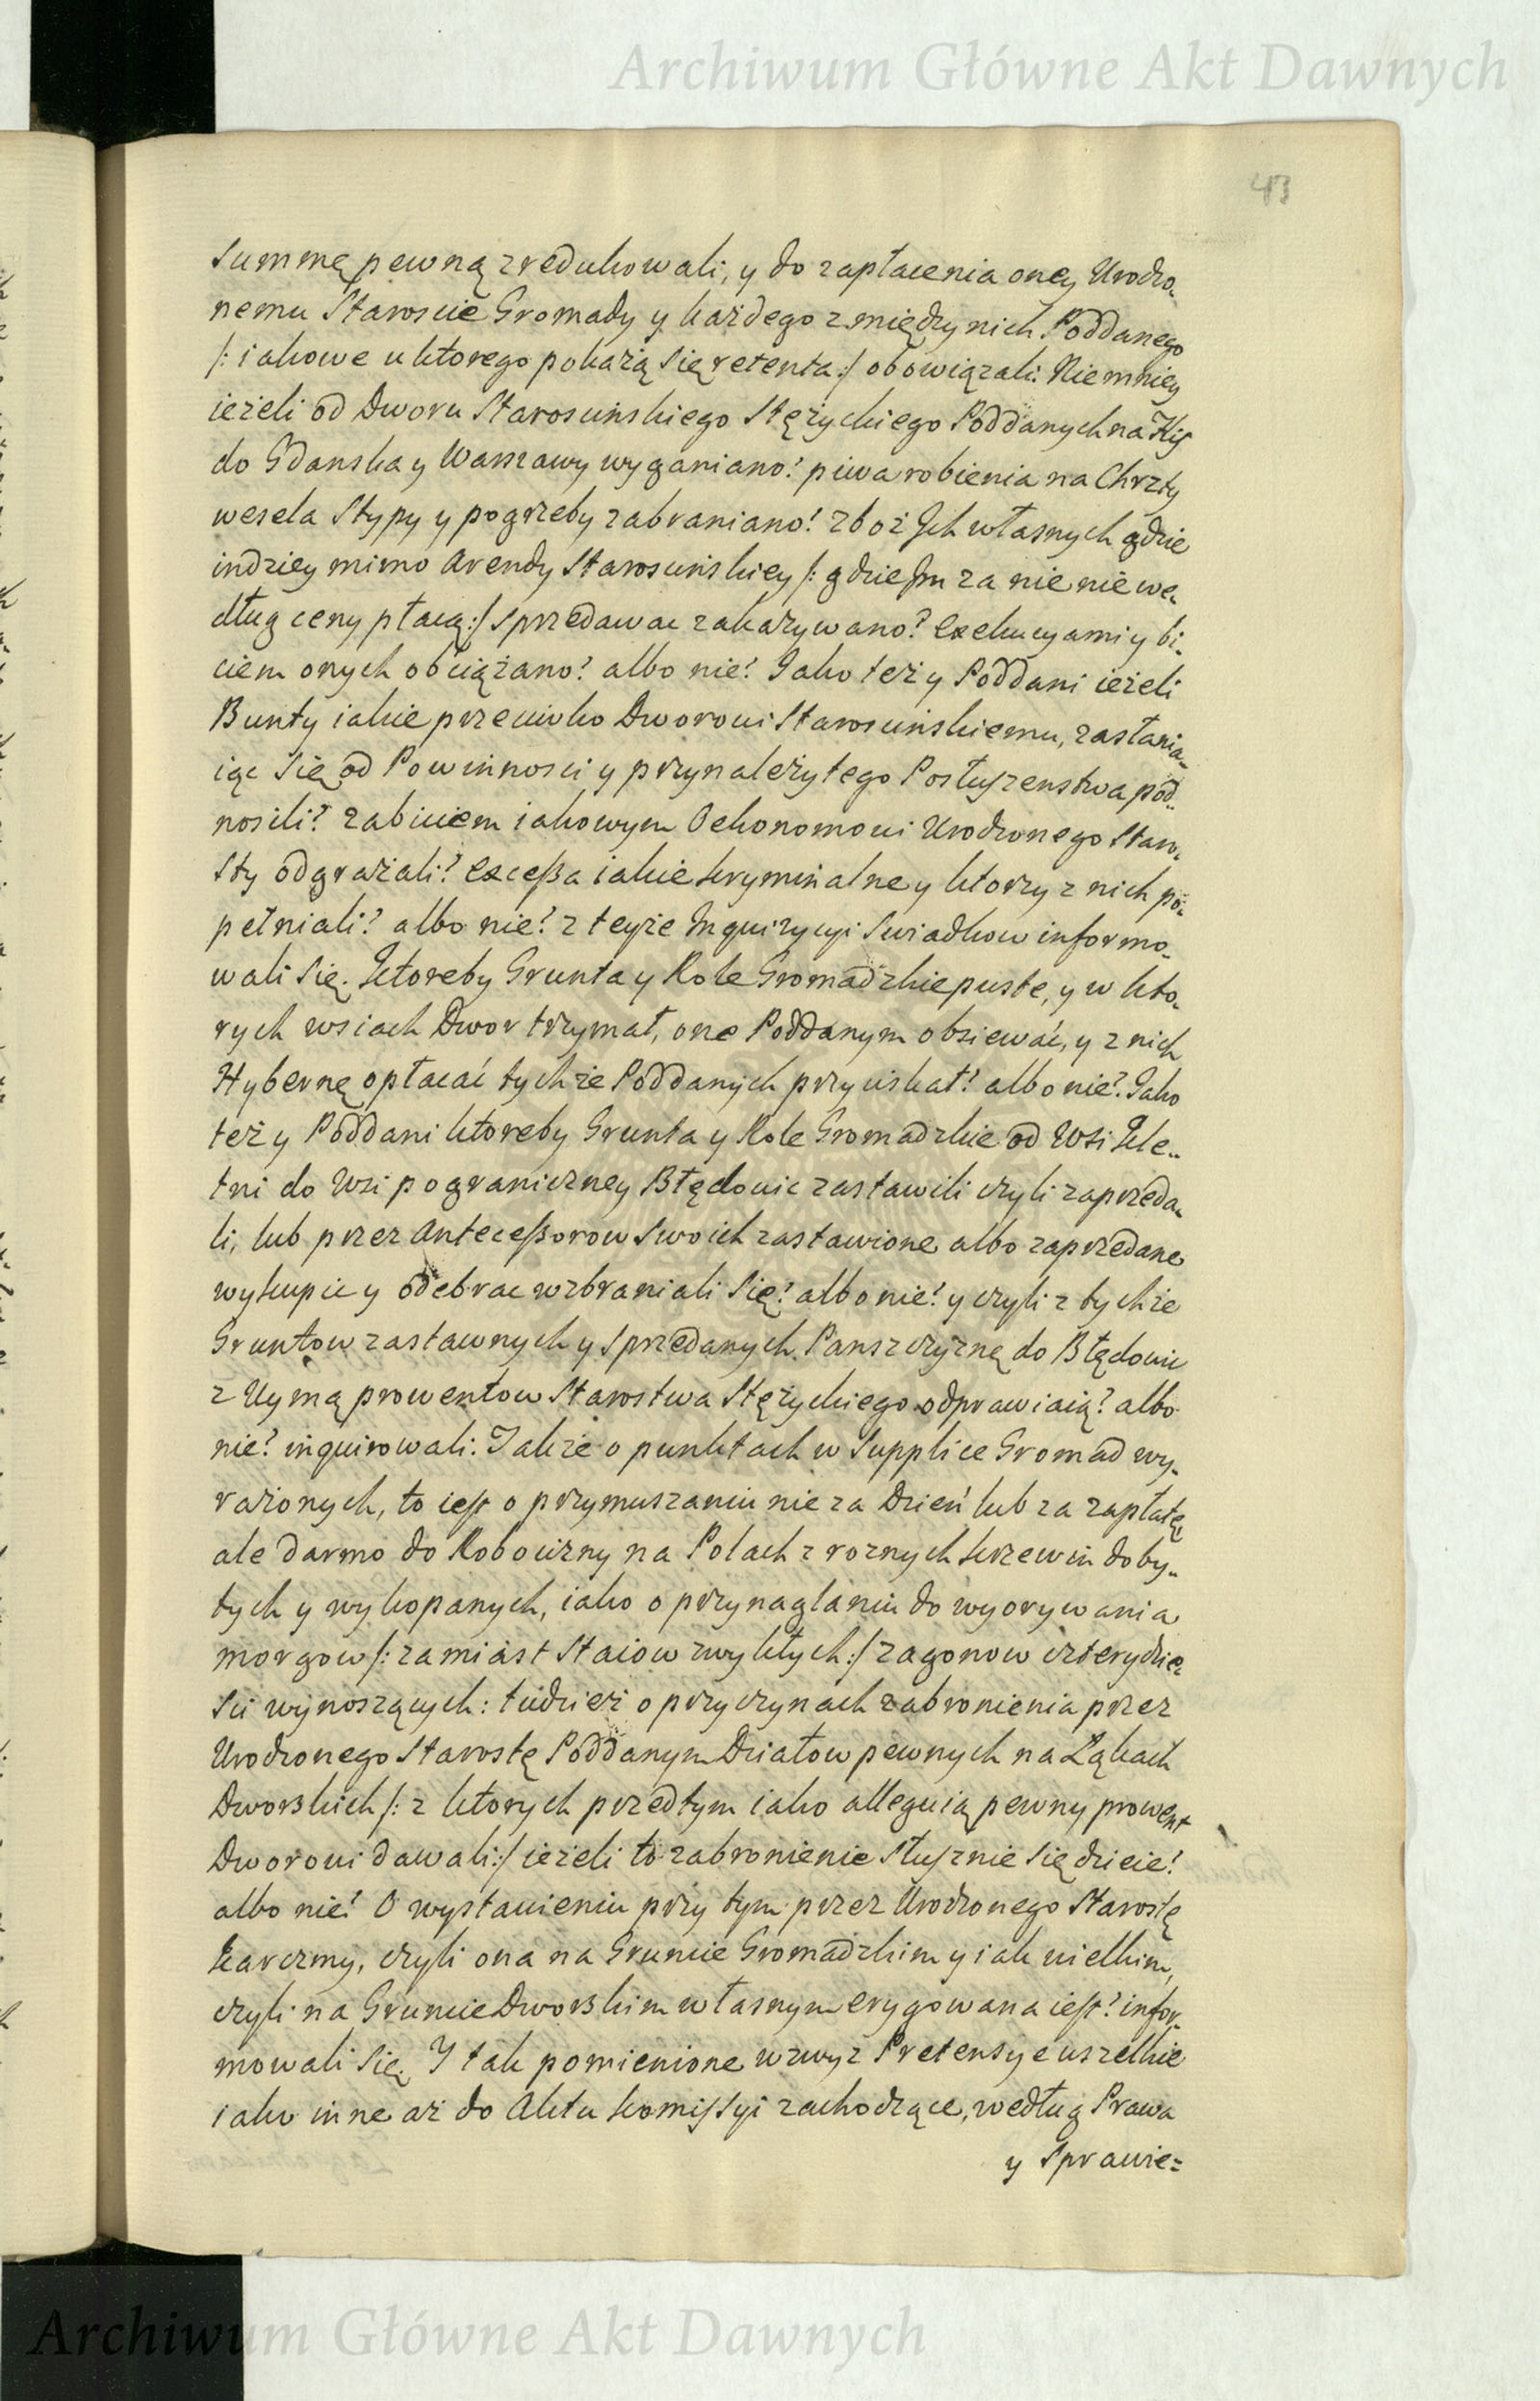 Archiwum Główne Akt Dawnych
43
Summę pewną zredukowali, y do zapłacenia oney Urodzo„
nemu Staroscie Gromady y każdego z między nich Poddanego
/: iakowe u ktorego pokażą się retenta :/ obowiązali. Niemniey
ieżeli od Dworu Starościńskiego Stężyckiego Poddanych na Flis
do Gdanska y Warszawy wyganiano? piwa robienia na Chrzty
wesela Stypy y pogrzeby zabraniano? zboż Ich własnych gdzie
indziey mimo Arendy Starościńskiey /: gdzie Im za nie nie we„
dług ceny płacą :/ sprzedawac zakazywano? Exekucyami y bi„
ciem onych obciążano? albo nie? Jako też y Poddani ieżeli
Bunty iakie przeciwko Dworowi Starościńskiemu, zasłania„
iąc się od Powinnosci y przynależytego Posłuszenstwa pod„
nosili? zabiciem iakowym Oekonomowi Urodzonego Staro„
sty odgrażali? excessa iakie kryminalne y ktorzy z nich po„
pełniali? albo nie? z teyże Inquizycyi Swiadkow informo„
wali się. Ktoreby Grunta y Role Gromadzkie puste, y w kto„
rych wsiach Dwor trzymał, one Poddanym obsiewać, y z nich
Hybernę opłacać tychże Poddanych przyciskał? albo nie? Jako
też y Poddani ktoreby Grunta y Role Gromadzkie od Wsi Kle„
tni do Wsi pograniczney Błędowic zastawili czyli zaprzeda„
li, lub przez Antecessorow Swoich zastawione albo zaprzedane
wykupic y odebrac wzbraniali się? albo nie? y czyli z tychże
Gruntow zastawnych y sprzedanych Panszczyznę do Błędowic
z Uymą prowentow Starostwa Stężyckiego odprawiaią? albo
nie? inquirowali. Także o punktach w Supplice Gromad wy„
rażonych, to iest o przymuszaniu nie za Dzień lub za zapłatę
ale darmo do Robocizny na Polach z roznych krzewin doby„
tych y wykopanych, iako o przynaglaniu do wyorywania
morgow /: zamiast Staiow zwykłych :/ zagonow czterydzie„
sci wynoszących: tudzież o przyczynach zabronienia przez
Urodzonego Starostę Poddanym Działow pewnych na Łąkach
Dworskich /: z ktorych przedtym iako alleguią pewny prowent
Dworowi dawali :/ ieżeli to zabronienie słusznie się dzieie?
albo nie? O wystawieniu przy tym przez Urodzonego Starostę
karczmy, czyli ona na Gruncie Gromadzkim y iak wielkim,
czyli na Gruncie Dworskim własnym erygowana iest? infor„
mowali się. Y tak pomienione wzwyz Pretensye wszelkie
iako inne aż do Aktu kommissyi zachodzące, według Prawa
y Sprawie=
Archiwum Główne Akt Dawnych